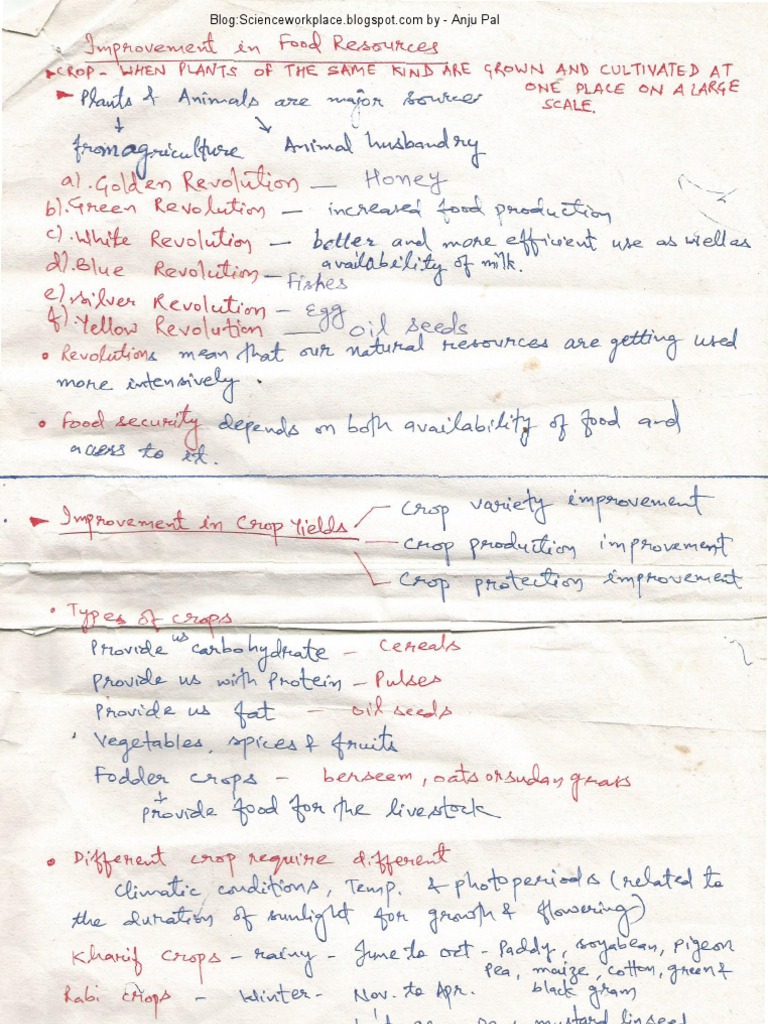 Blog:Scienceworkplace.blogspot.com by - Anju Pal
Improvement in Food Resources
CROP - WHEN PLANTS OF THE SAME KIND ARE GROWN AND CULTIVATED AT
ONE PLACE ON A LARGE
SCALE.
Plants & Animals are major sources
from agriculture Animal husbandry
a). Golden Revolution — Honey
b). Green Revolution — increased food production
c). White Revolution — better and more efficient use as well as
availability of milk.
d). Blue Revolution — Fishes
e). Silver Revolution — Egg
f). Yellow Revolution — oil seeds
• Revolutions mean that our natural resources are getting used
more intensively.
• Food security depends on both availability of food and
acess to it.
Improvement in Crop Yields
Crop variety improvement
Crop production improvement
Crop protection improvement
• Types of crops
Provide us carbohydrate - Cereals
Provide us with Protein - Pulses
Provide us fat - oil seeds
Vegetables, spices & fruits
Fodder crops - berseem, oats or sudan grass
provide food for the livestock
• Different crop require different
Climatic conditions, Temp. & photoperiods (related to
the duration of sunlight for growth & flowering)
Kharif crops - rainy - June to Oct - Paddy, soyabean, pigeon
pea, maize, cotton, green &
black gram
Rabi crops - Winter - Nov. to Apr.
mustard linseed